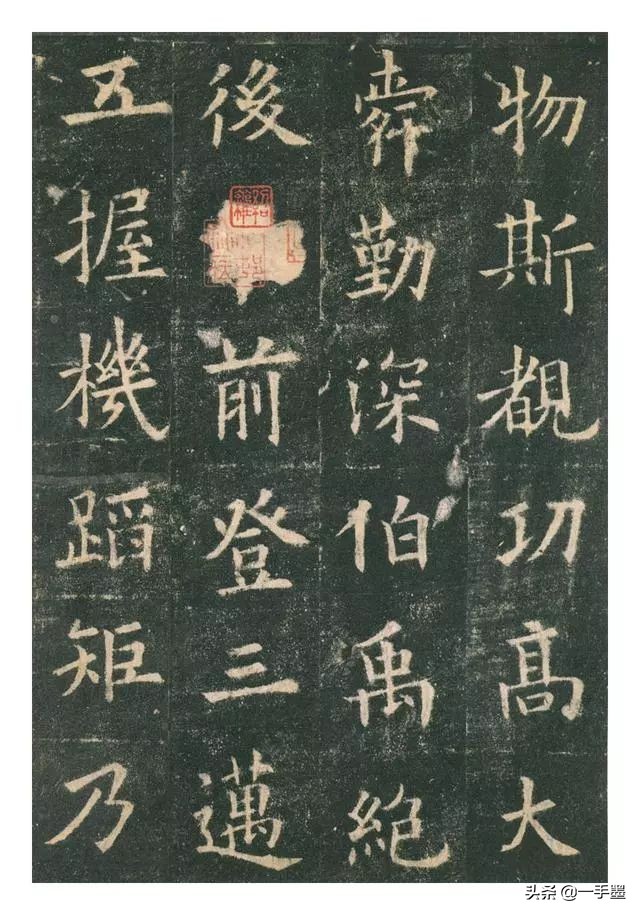 物斯覩功髙大
舜勤深伯禹絶
後前登三邁
五握機蹈矩乃
头条 @一手墨